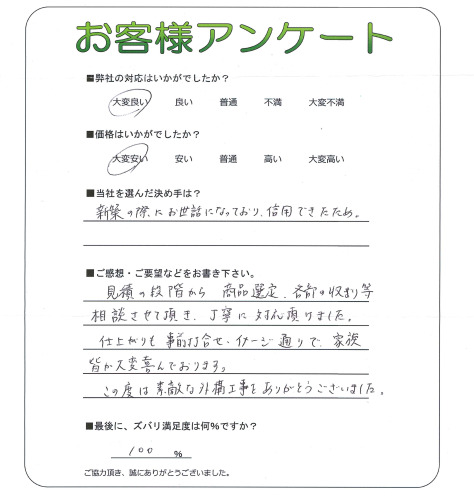 お客様アンケート
■弊社の対応はいかがでしたか？
大変良い 良い 普通 不満 大変不満
■価格はいかがでしたか？
大変安い 安い 普通 高い 大変高い
■当社を選んだ決め手は？
新築の際にお世話になっており、信用できたため。
■ご感想・ご要望などをお書き下さい。
見積の段階から 商品選定、各部の収まり等
相談させて頂き、丁寧に対応頂けました。
仕上がりも 事前打合せ、イメージ通りで、家族
皆が大変喜んでおります。
この度は 素敵な外構工事をありがとうございました。
■最後に、ズバリ満足度は何%ですか？
100 %
ご協力頂き、誠にありがとうございました。